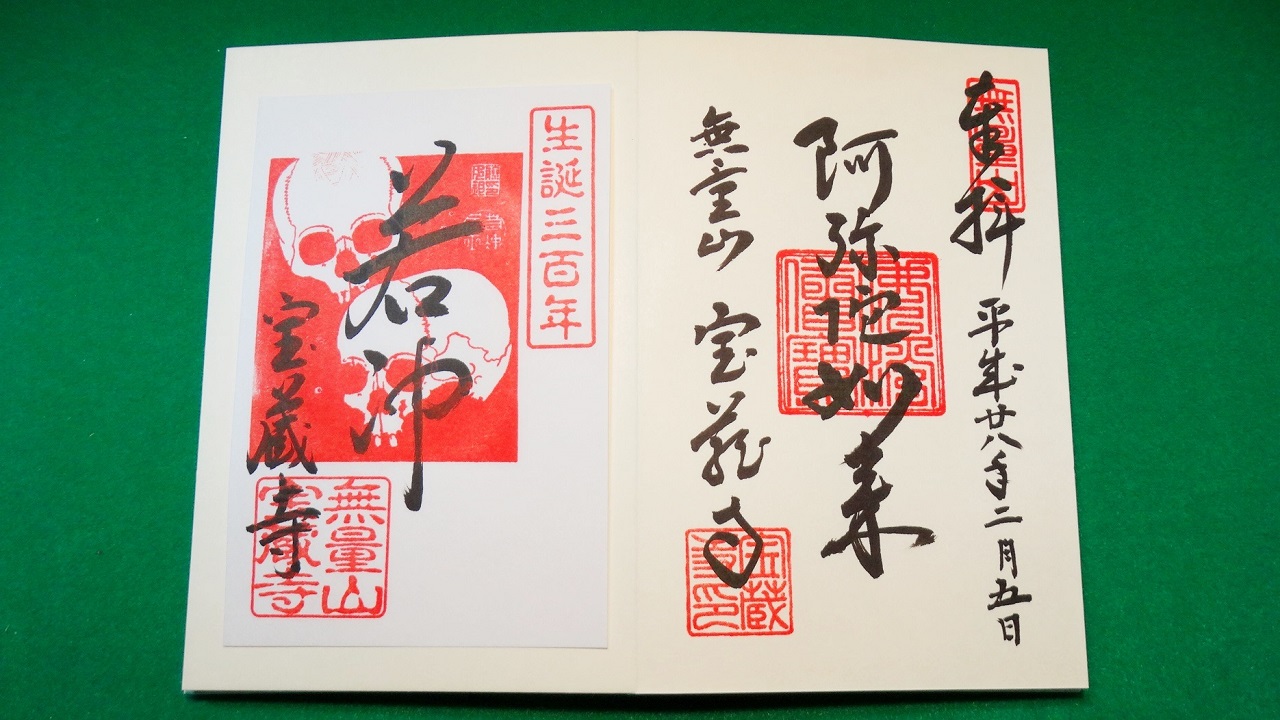 奉拝
平成廿八年二月五日
無量山
阿弥陀如来
佛法僧寶
無量山
宝蔵寺
宝蔵
寺印
生誕三百年
若冲
宝蔵寺
無量山
宝蔵寺